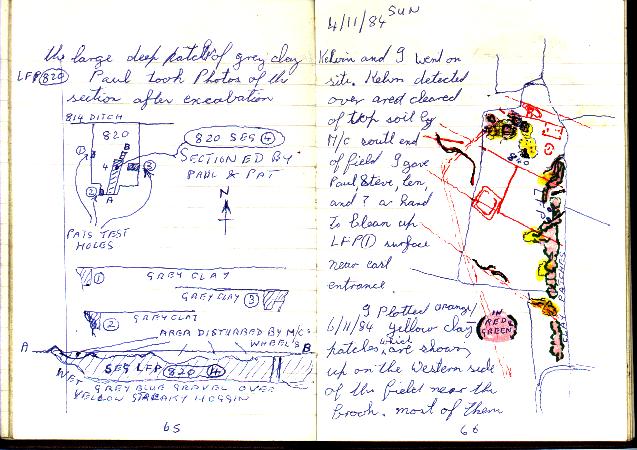 the large deep patch of grey clay
LFP 820 Paul took Photos of the
section after excabation
814 DITCH
820
820 SEG 4
SECTIONED BY
PAUL & PAT
1
B
4
3
2
A
N
PATS TEST
HOLES
1 GREY CLAY
GREY CLAY 3
2 GREY CLAY
AREA DISTURBED BY M/CS
WHEEL'S
A
B
SEG LFP 820 4
WET
GREY BLUE GRAVEL OVER
YELLOW STREAKY HOGGIN
65
4/11/84 SUN
Kelvin and I went on
site. Kelvin detected
over area cleared
of top soil by
M/C south end
of field I gave
Paul, Steve, Len,
and ? a hand
to clean up
LFP(1) surface
near east
entrance.
I Plotted orange/
6/11/84 yellow clay
patches, which are shown
up on the western side
of the field near the
brook. most of them
840
CLAY PATCHES
IN
RED
GREEN
66